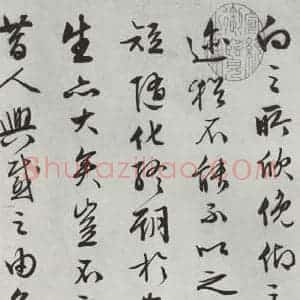 向之所欣俛仰之
迹猶不能不以之
短隨化終期於
生亦大矣豈不
昔人興感之由
Shufaziliao.COM